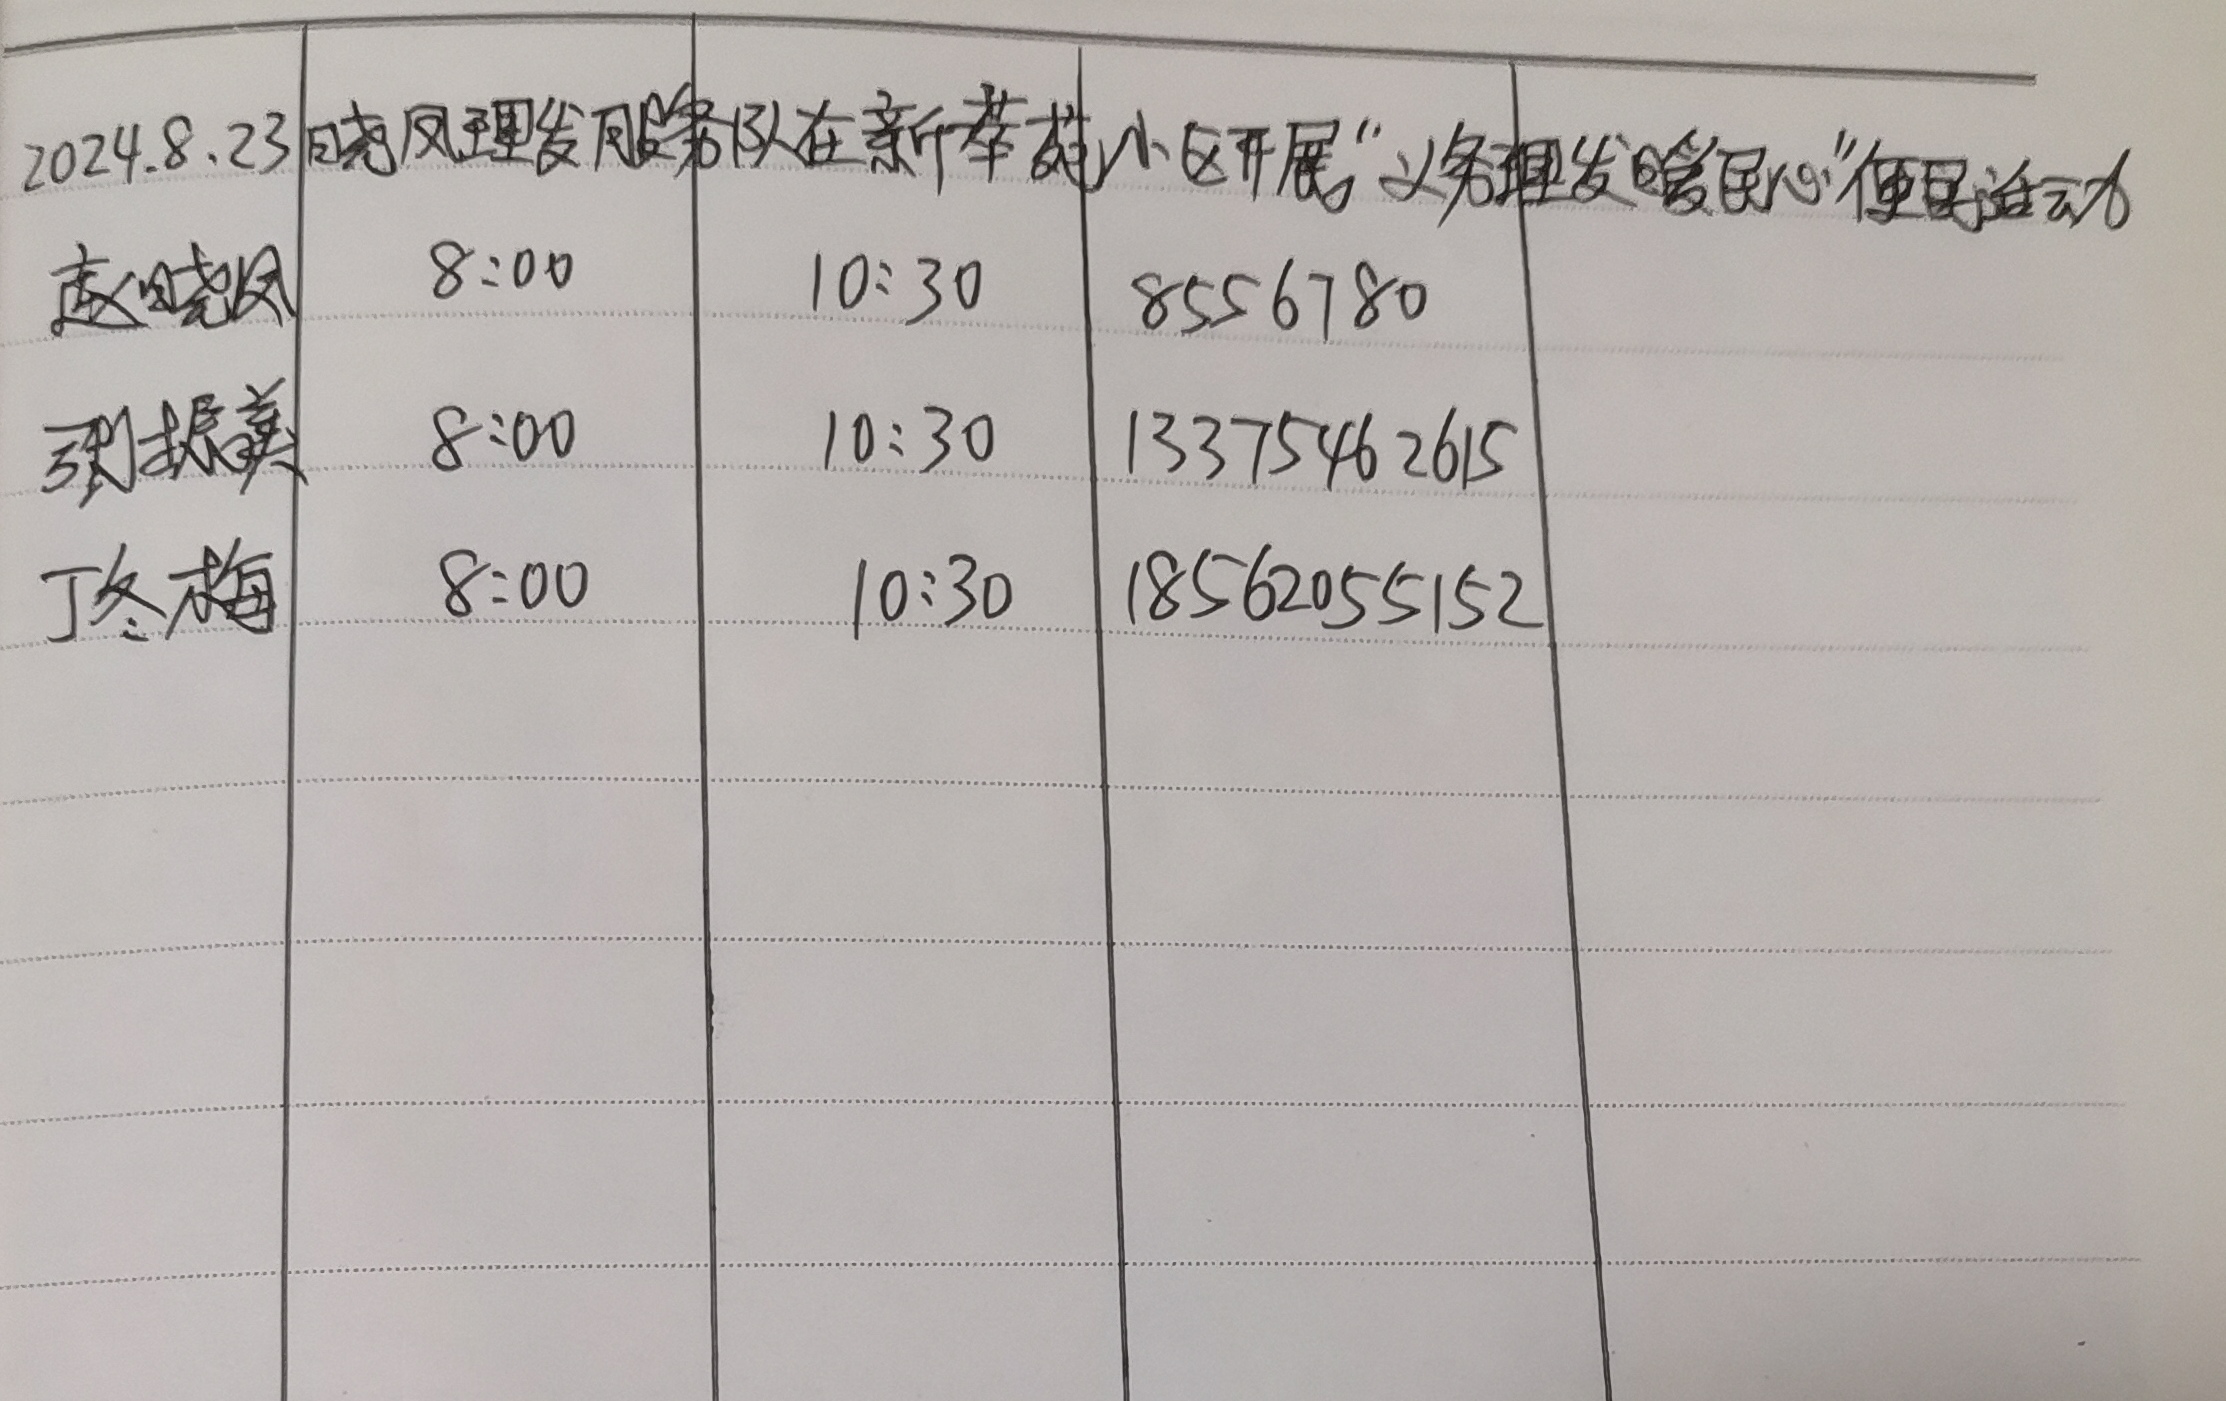 2024.8.23晓凤理发服务队在新莘苑小区开展“义务理发暖民心”便民活动
赵晓凤 8:00 10:30 8556780
振美 8:00 10:30 13375462615
丁冬梅 8:00 10:30 18562055152